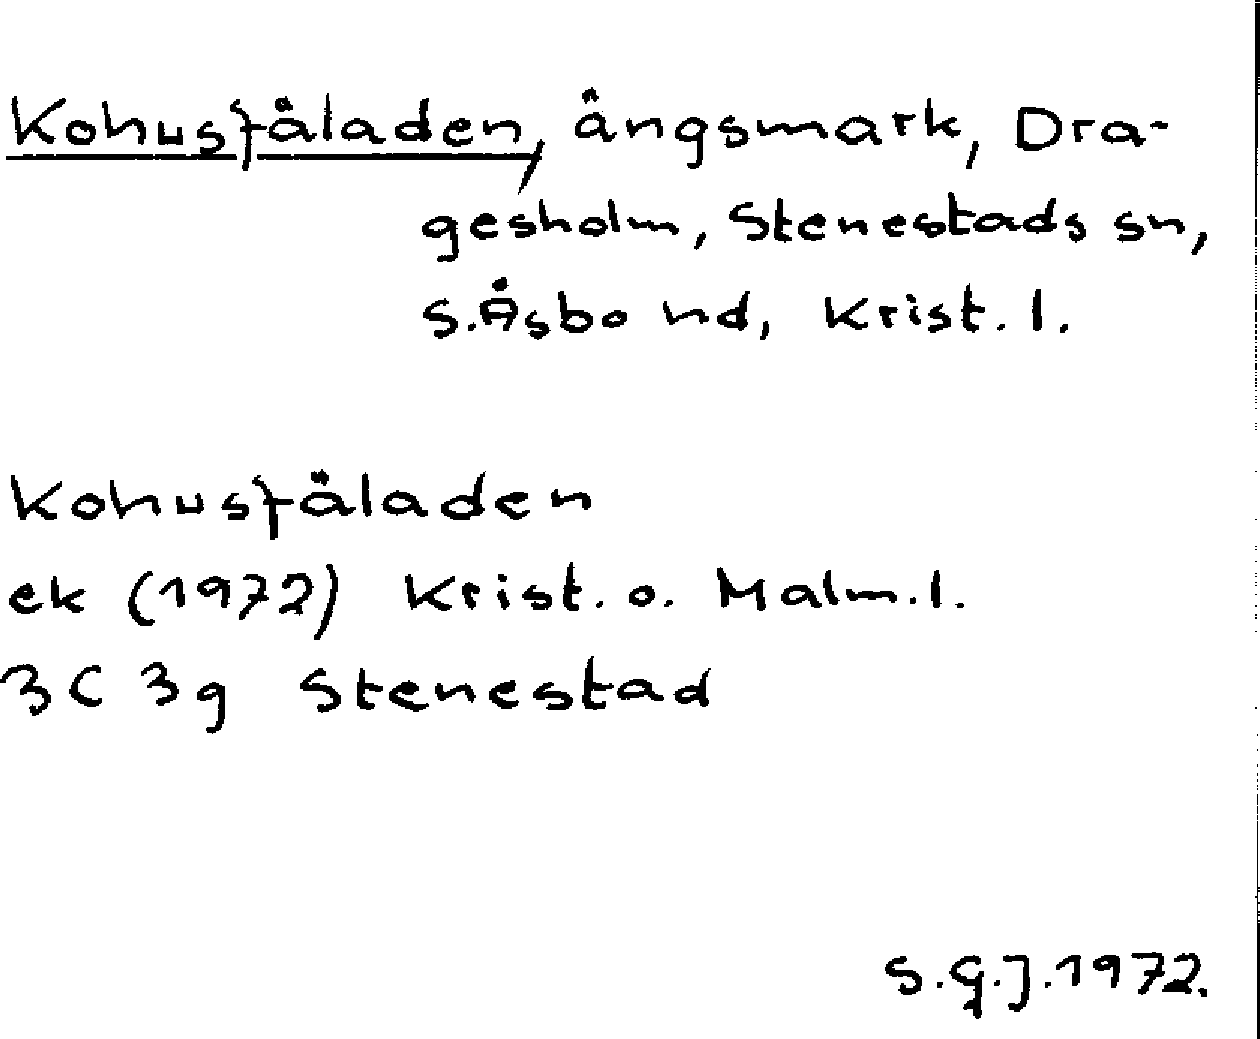 Kohusfäladen, ängsmark, Dra-
gesholm, Stenestads sn,
S. Åsbo hd, Krist. l.
Kohusfäladen
ek (1972) Krist. o. Malm. l.
3C 3g Stenestad
S.G.J. 1972.